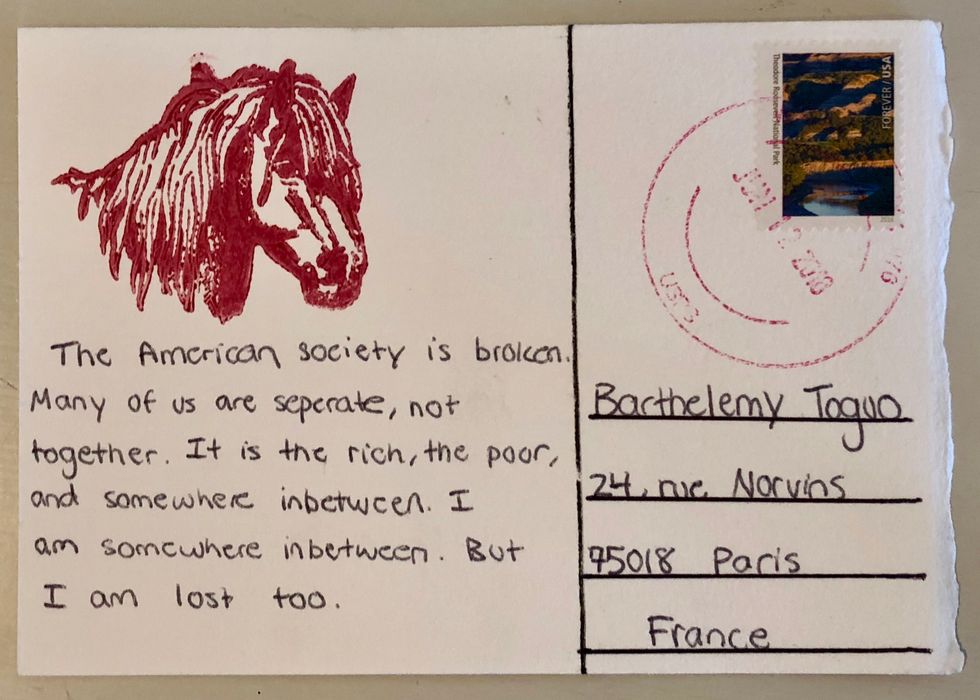 The American society is broken.
Many of us are seperate, not
together. It is the rich, the poor,
and somewhere inbetween. I
am somewhere inbetween. But
I am lost too.
Theodore Roosevelt National Park
FOREVER / USA
2018
USPS
Barthelemy Toguo
24, rue Norvins
75018 Paris
France